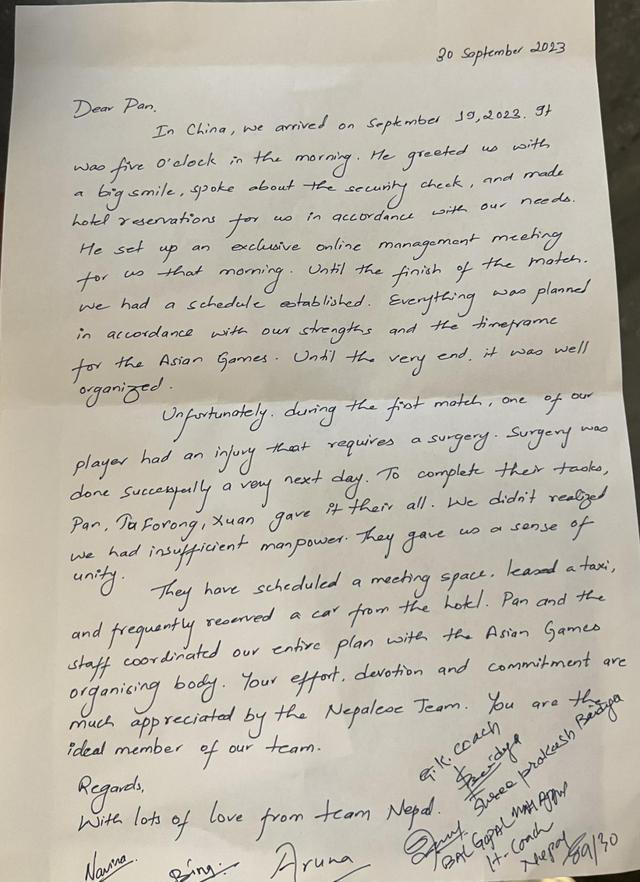 30 September 2023
Dear Pan,
In China, we arrived on September 19, 2023. It
was five o'clock in the morning. He greeted us with
a big smile, spoke about the security check, and made
hotel reservations for us in accordance with our needs.
He set up an exclusive online management meeting
for us that morning. Until the finish of the match.
we had a schedule established. Everything was planned
in accordance with our strengths and the timeframe
for the Asian Games. Until the very end, it was well
organized.
Unfortunately, during the first match, one of our
player had an injury that requires a surgery. Surgery was
done successfully a very next day. To complete their tasks,
Pan, Tu Forong, Xuan gave it their all. We didn't realized
we had insufficient manpower. They gave us a sense of
unity.
They have scheduled a meeting space, leased a taxi,
and frequently reserved a car from the hotel. Pan and the
staff coordinated our entire plan with the Asian Games
organising body. Your effort, devotion and commitment are
much appreciated by the Nepalese Team. You are the
ideal member of our team.
Regards,
With lots of love from team Nepal.
G.K. coach
Baidya
Shree prakash Baidya
BAL GOPAL MAHARJAN
Ht-Coach
Nepal
09/30
Aruna